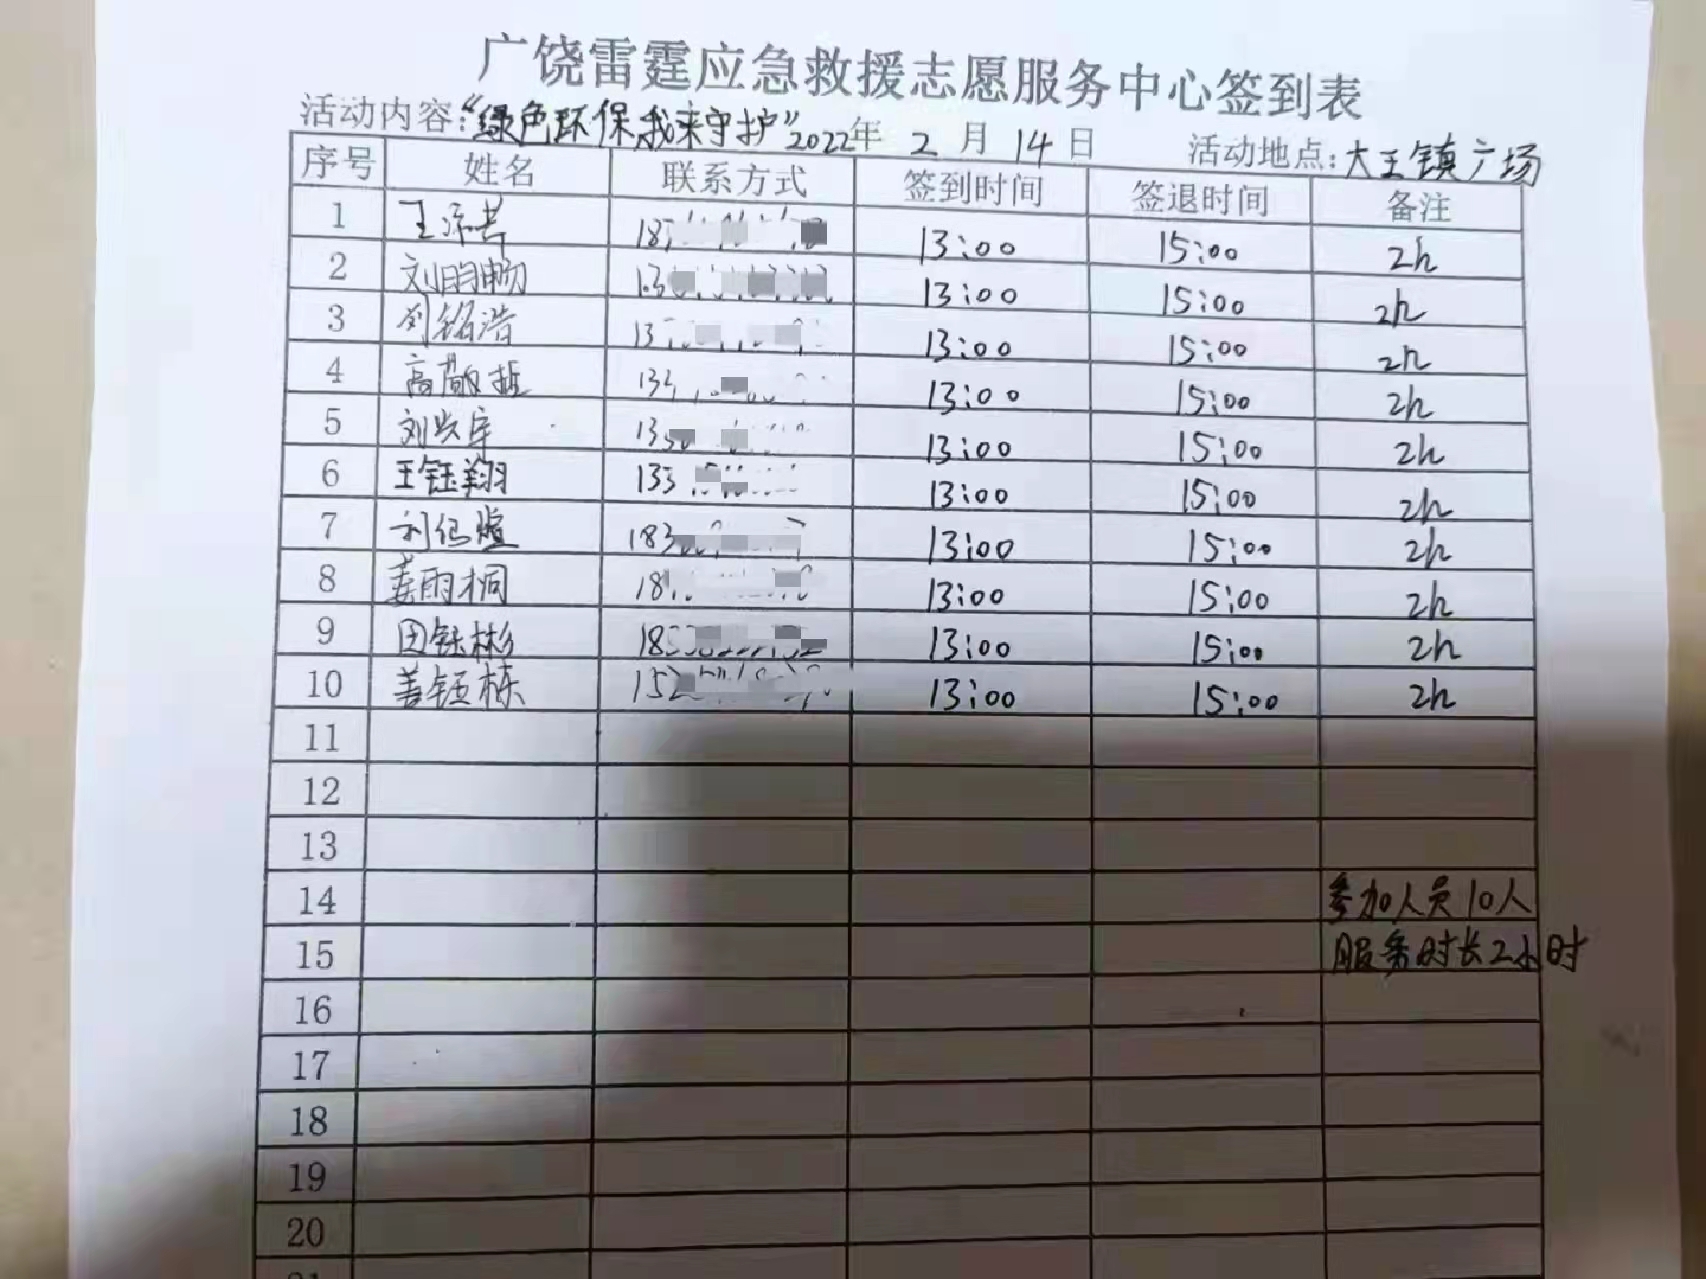 广饶雷霆应急救援志愿服务中心签到表
活动内容:“绿色环保我来守护” 2022年 2 月 14 日 活动地点:大王镇广场
序号 姓名 联系方式 签到时间 签退时间 备注
1 13:00 15:00 2h
2 刘明畅 13:00 15:00 2h
3 刘铭浩 13:00 15:00 2h
4 13:00 15:00 2h
5 13:00 15:00 2h
6 王钰翔 13:00 15:00 2h
7 13:00 15:00 2h
8 姜雨桐 13:00 15:00 2h
9 田钰彬 13:00 15:00 2h
10 盖钰栋 13:00 15:00 2h
11
12
13
14 参加人员10人
15 服务时长2小时
16
17
18
19
20